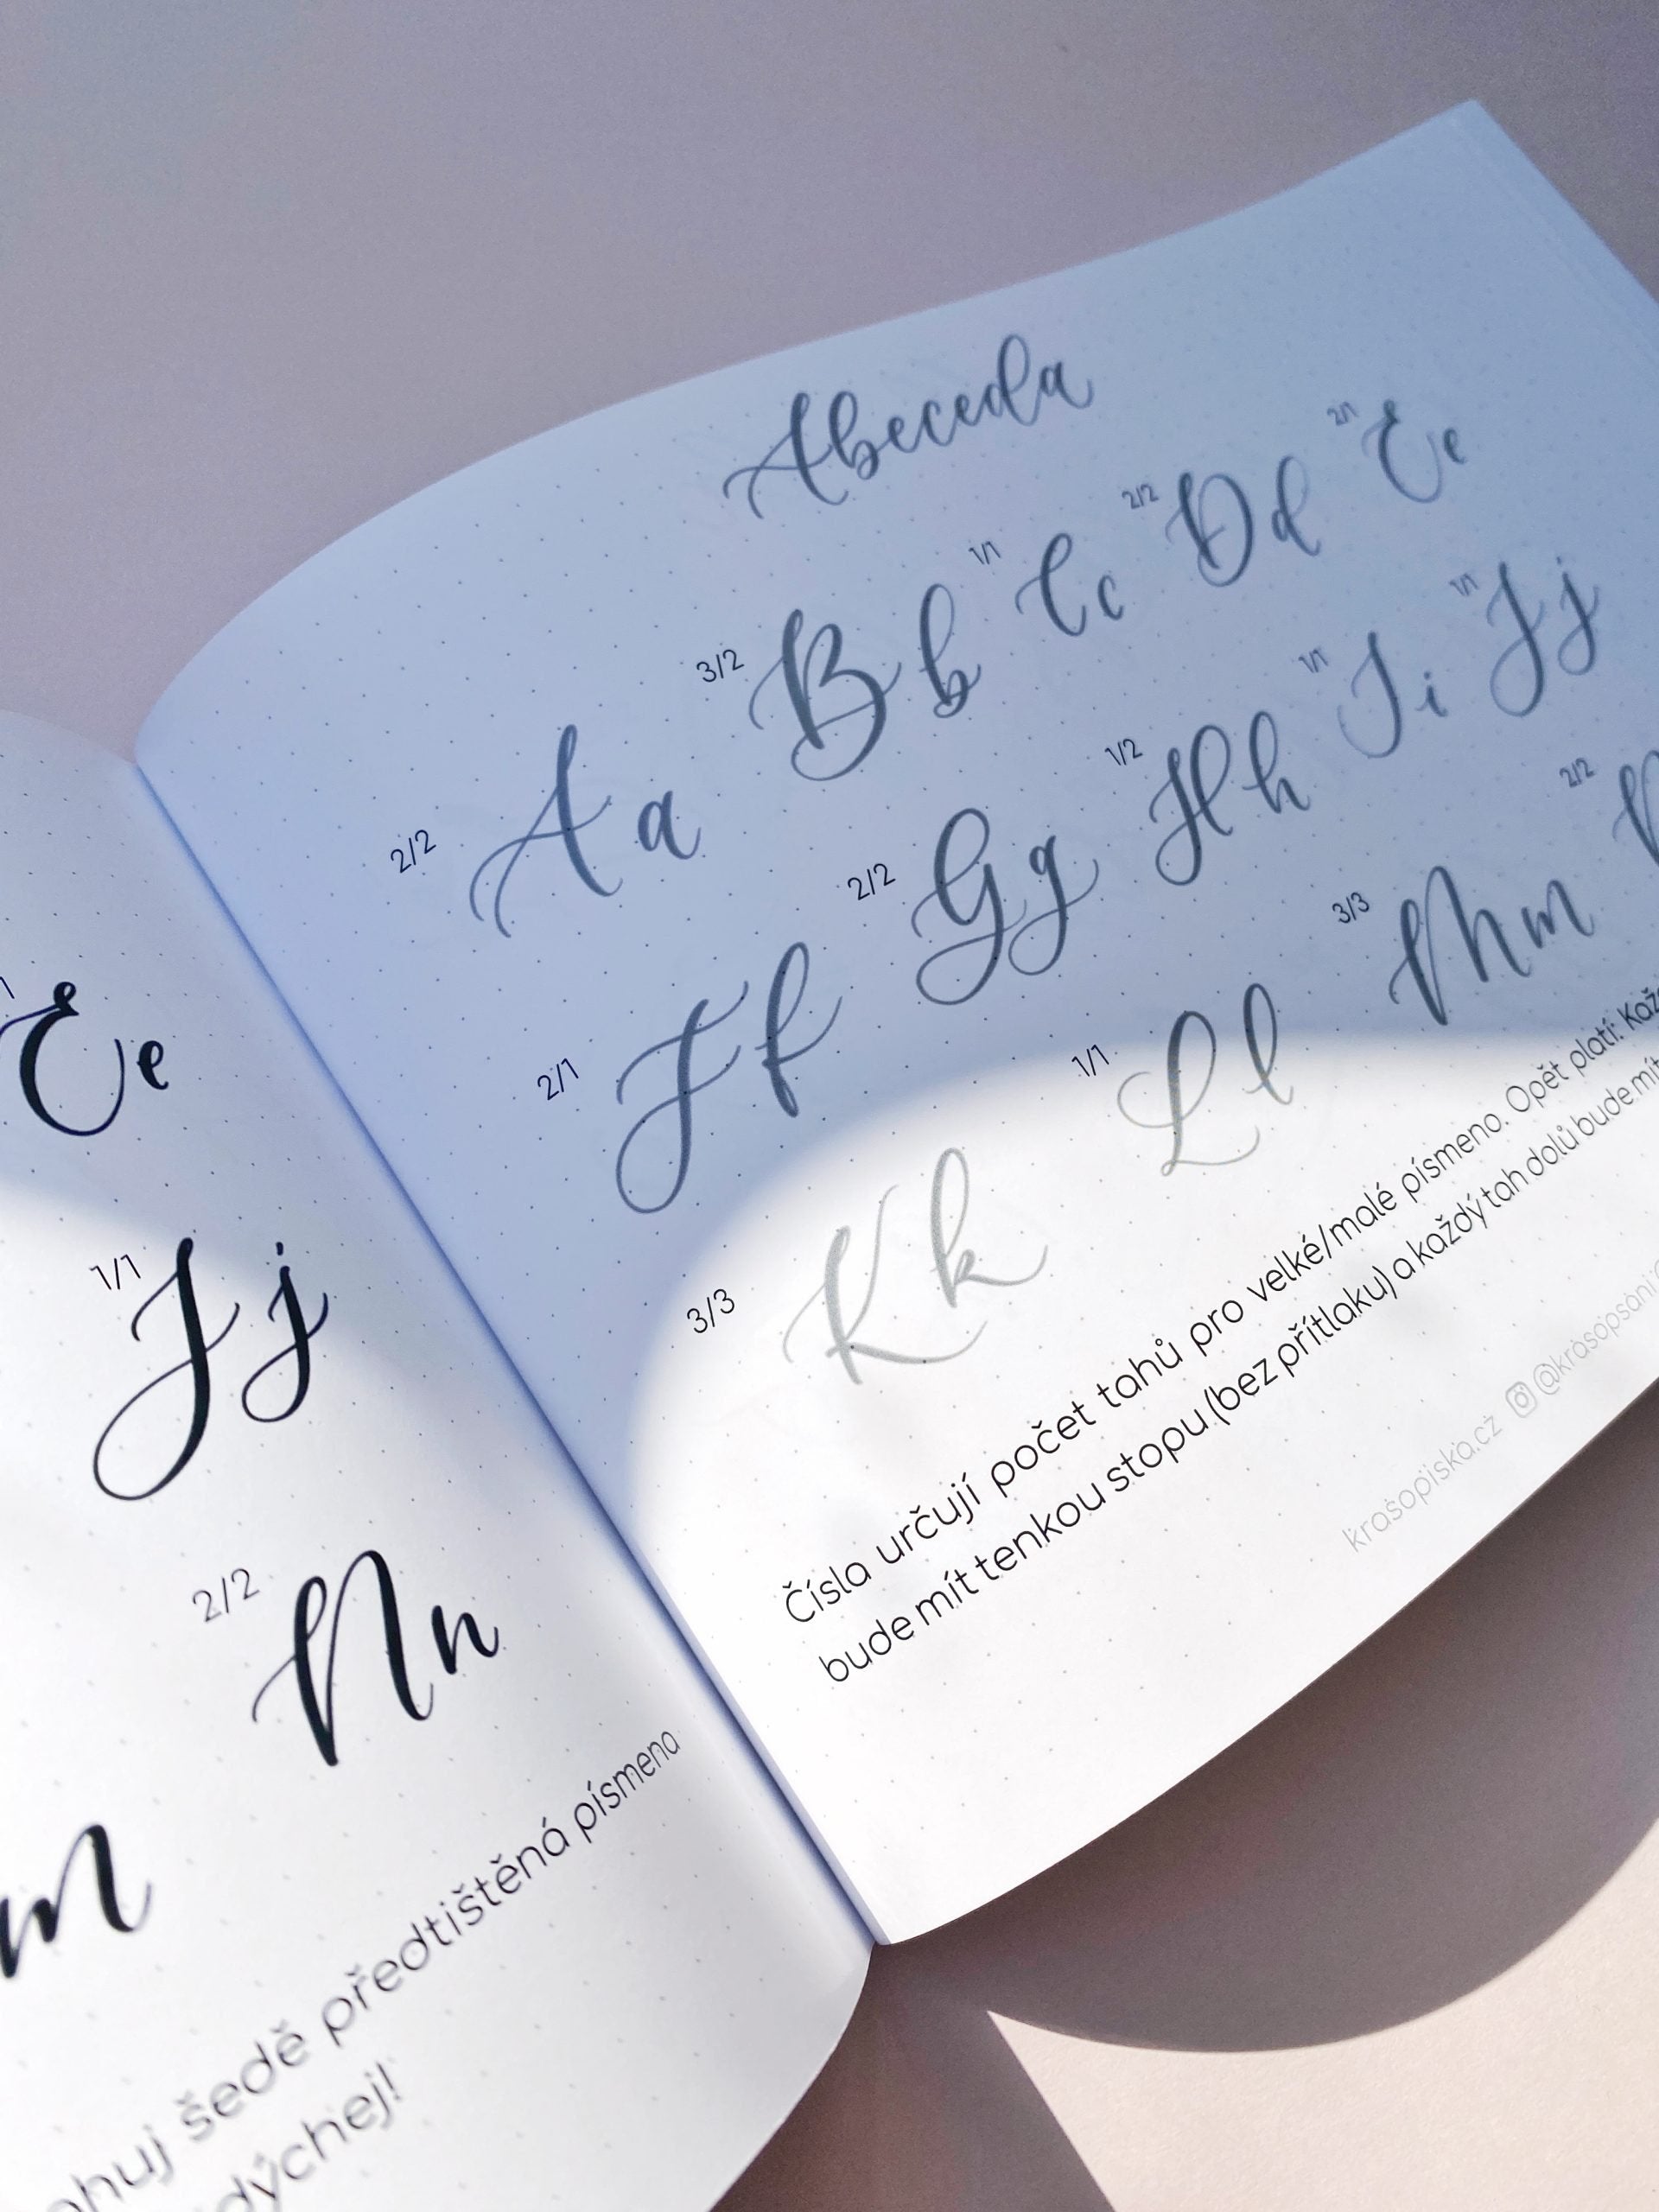 Ee
1/1 Jj
2/2 Nn
m
šedě předtištěná písmena
Abeceda
2/2 Aa 3/2 Bb 1/1 Cc 2/2 Dd 2/1 Ee
2/1 Ff 2/2 Gg 1/2 Hh 1/1 Ii 1/1 Jj
3/3 Kk 1/1 Ll 3/3 Mm 2/2
Čísla určují počet tahů pro velké/malé písmeno. Opět platí:
bude mít tenkou stopu (bez přítlaku) a každý tah dolů bude mít
krasopiska.cz @krasopsani